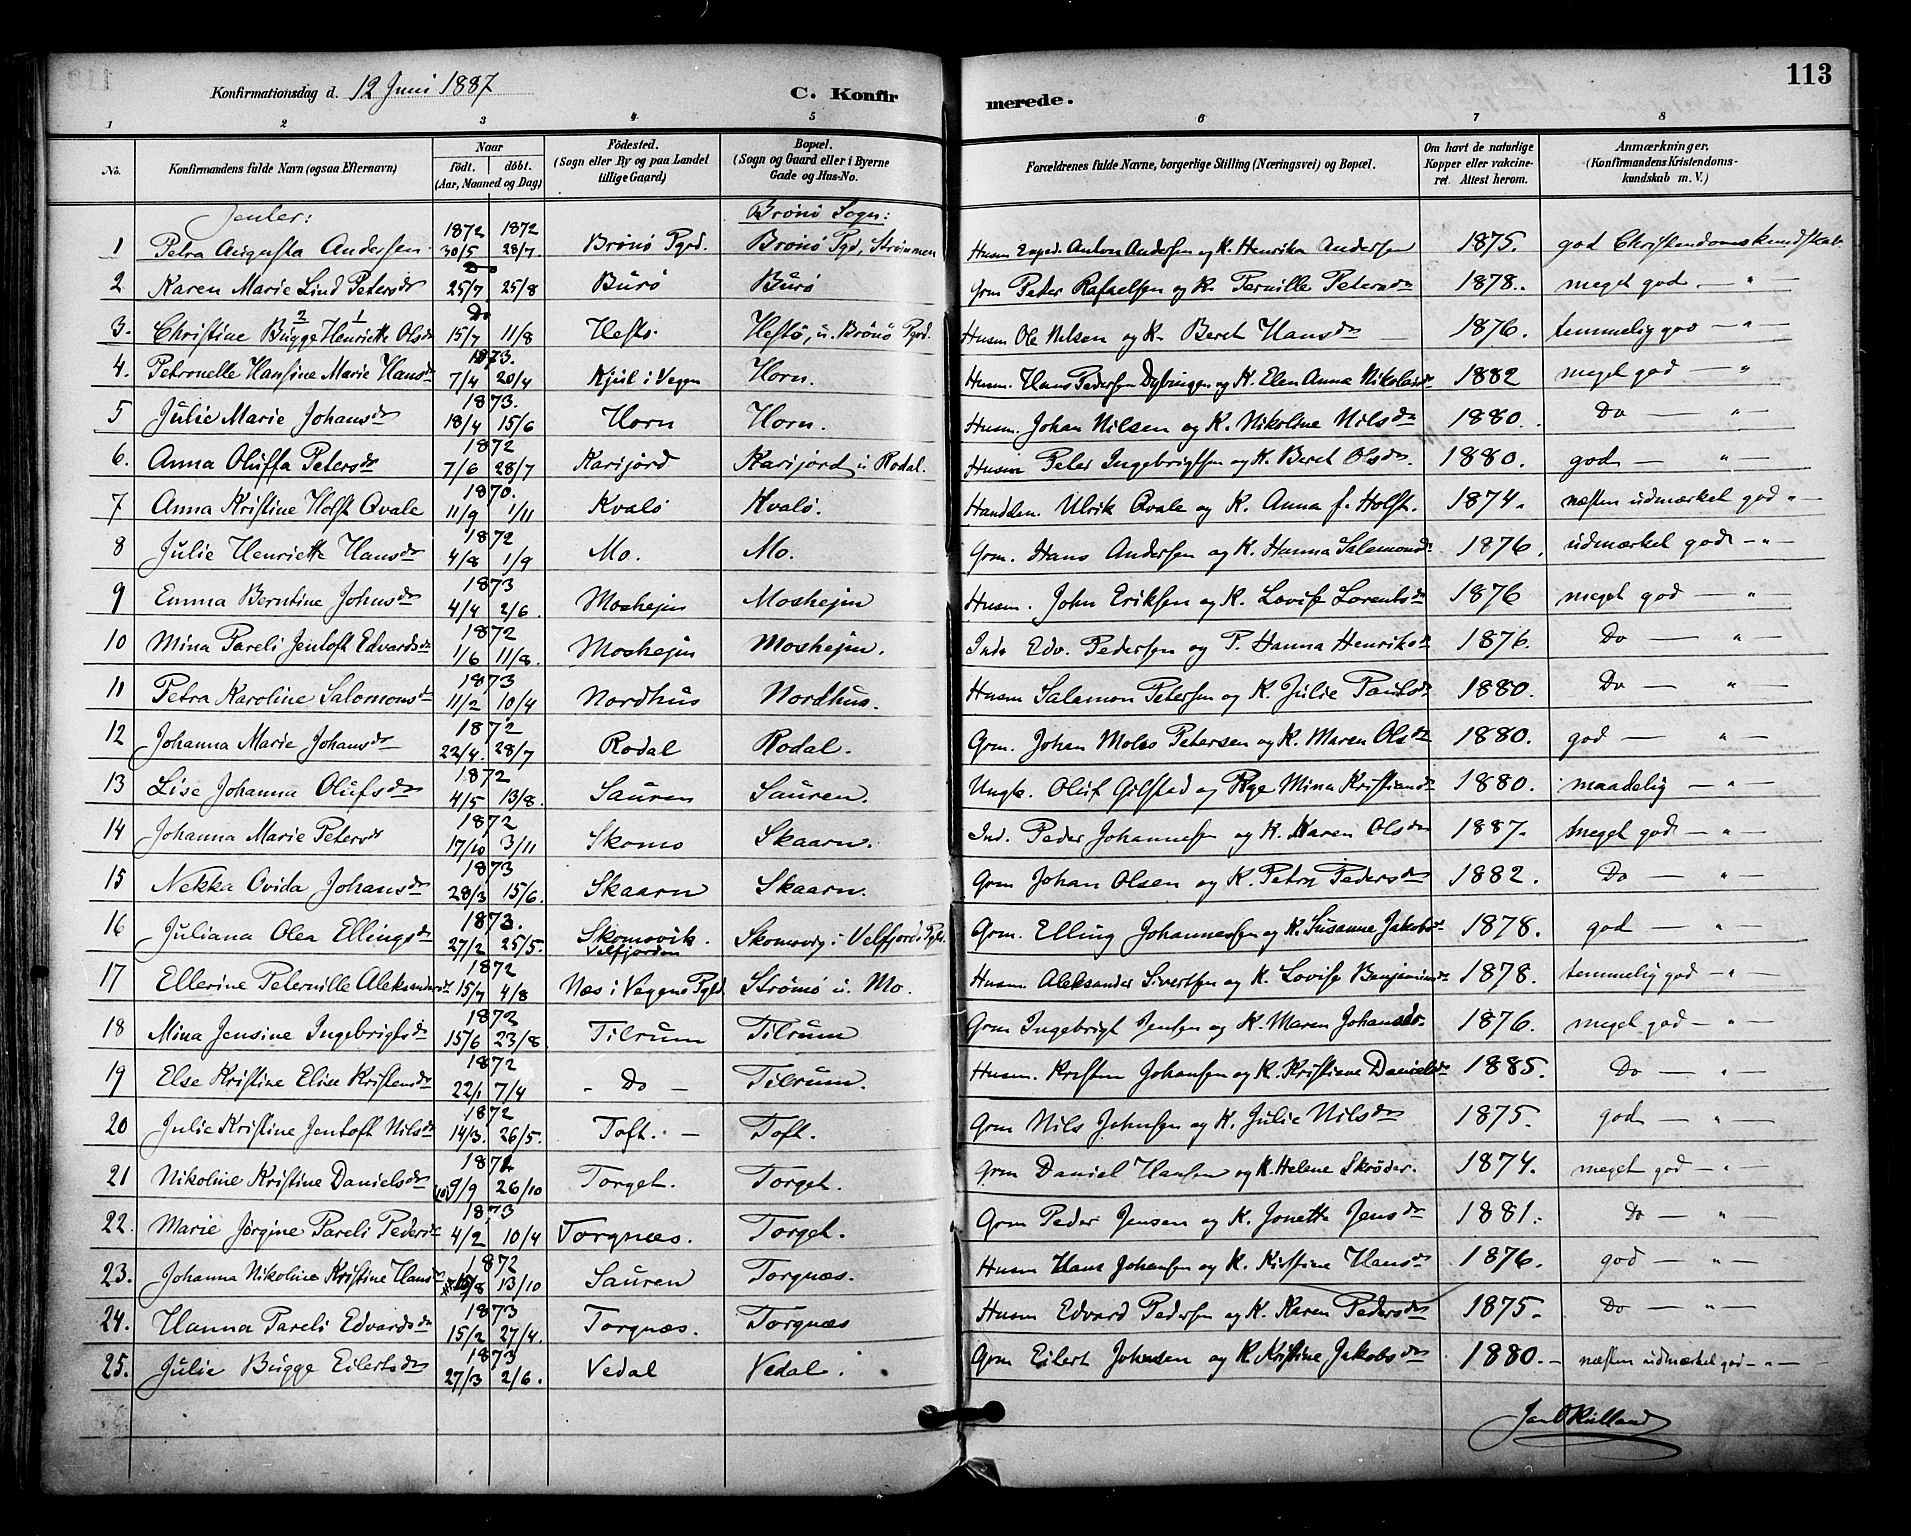 113
Konfirmationsdag d. 12 Juni 1887
C. Konfirmerede.
1 2 3 4 5 6 7 8
No. Konfirmandens fulde Navn (ogsaa Efternavn) Naar födt. döbt. (Aar, Maaned og Dag) Födested. (Sogn eller By og paa Landet tillige Gaard) Bopæl. (Sogn og Gaard eller i Byerne Gade og Hus-No. Forældrenes fulde Navne, borgerlige Stilling (Næringsvei) og Bopæl. Om havt de naturlige Kopper eller vakcineret. Attest herom. Anmærkninger, (Konfirmandens Kristendomskundskab m. V.)
Jenter: Brönö Sogn:
1 Petra Augusta Andersen 1872 30/5 1872 28/7 Brönö Pgrd. Brönö Pgd, Strömmen Husm Anton Andersen og K. Henrika Andersen 1875. god Christendomskundskab
2 Karen Marie Lind Petersdr Do 25/7 25/8 Burö Burö Grm Peder Rafaelsen og K. Pernille Petersdr 1878. meget god — " —
3. Christine Bugge Henriette Olsdr Do 15/7 11/8 Hestö Hestö, u. Brönö Pgrd. Husm Ole Nilsen og K. Beret Hansdr 1876. temmelig god — " —
4. Petronelle Hansine Marie Hansdr 1873. 7/4 20/4 Kjul i Vegen Horn. Husm. Hans Pedersen Dybingen og K. Elen Anna Nikolaidr 1882 meget god — "
5 Julie Marie Johansdr 1873. 18/4 15/6 Horn Horn. Husm. Johan Nilsen og K. Nikoline Nilsdr 1880. Do — " —
6. Anna Oluffa Petersdr 1872 7/6 28/7 Karijord Karijord u Rodal. Husm Peter Ingebrigtsen og K. Beret Olsdr. 1880. god — " —
7 Anna Kristine Holst Qvale 1870. 11/9 1/11 Kvalö Kvalö. Handlm. Ulrik Qvale og K. Anna f. Holst. 1874. næsten udmærket god " —
8 Julie Henriette Hansdr 1872 4/8 1/9 Mo. Mo. Grm. Hans Andersen og K. Hanna Salamonsdr 1876. udmærket god — " —
9 Emma Berntine Johnsdr 1873 4/4 2/6. Moshejen Moshejen Husm. John Eriksen og K. Lovise Lorentsdr 1876 meget god — "
10 Mina Pareli Jentoft Edvardsdr 1872 1/6 11/8. Moshejen Moshejen. Inds Edv. Pedersen og P. Hanna Henriksdr 1876. Do — " —
11 Petra Karoline Salomonsdr 1873 11/2 10/4 Nordhus Nordhus. Husm Salamon Petersen og K. Julie Paulsdr 1880. Do — " —
12 Johanna Marie Johansdr 1872 22/4. 28/7 Rodal Rodal. Grm. Johan Moles Petersen og K. Maren Olsdr 1880. god — " —
13 Lise Johanna Olufsdr 1872 4/5 13/8. Sauren Sauren. Ungk. Oluf Gilstad og Pige Mina Kristiansdr 1880. maadelig — " —
14 Johanna Marie Petersdr 1872 17/10 3/11 Skomo Skaarn. Ind. Peder Johannesen og K. Karen Olsdr 1887. meget god — " —
15 Nekka Ovida Johansdr 1873 28/3 15/6. Skaarn Skaarn. Grm Johan Olsen og K. Petra Pedersdr 1882. Do — " —
16 Juliana Olea Ellingsdr 1873. 27/2 25/5. Skomovik. Velfjorden Skomovig i Velfjords Pgld. Grm. Elling Johannessen og K. Susanne Jakobsdr 1878. god — " —
17 Ellerine Peternille Aleksandersdr 1872 15/7 4/8 Næs i Vegens Pgld Strömö u. Mo. Husm Aleksander Sivertsen og K. Lovise Benjaminsdr 1878. temmelig god — " —
18 Mina Jensine Ingebrigtsdr 1872 15/6 23/8. Tilrum Tilrum Grm Ingebrigt Jensen og K. Maren Johansdr. 1876. meget god — " —
19 Else Kristine Elise Kristensdr 1872 22/1 7/4 - Do - Tilrum. Husm. Kristen Johansen og K. Kristine Danielsdr 1885. Do — " —
20 Julie Kristine Jentoft Nilsdr 1872 14/3. 26/5. Toft. — Toft. Grm Nils Johnsen og K. Julie Nilsdr 1875. god — " —
21 Nikoline Kristine Danielsdr 1872 9/9 26/10 Torget. Torget. Grm Daniel Hansen og K. Helene Skröder. 1874. meget god — " —
22. Marie Jörgine Pareli Pedersdr 1873 4/2 10/4 Torgnæs. Torget. Grm Peder Jensen og K. Jonetta Jensdr 1881. Do — " —
23. Johanna Nikoline Kristine Hansdr 1872 15/8 13/10 Sauren Torgnæs. Husm Hans Johansen og K. Kirstine Hansdr 1876. god — " —
24. Hanna Pareli Edvardsdr 1873 15/2 27/4. Torgnæs. Torgnæs Husm Edvard Pedersen og K. Karen Pedersdr 1875. Do — " —
25. Julie Bugge Eilertsdr 1873 27/3 2/6. Vedal Vedal. Grm Eilert Johnsen og K Kristine Jakobsdr 1880. næsten udmærket god — " —